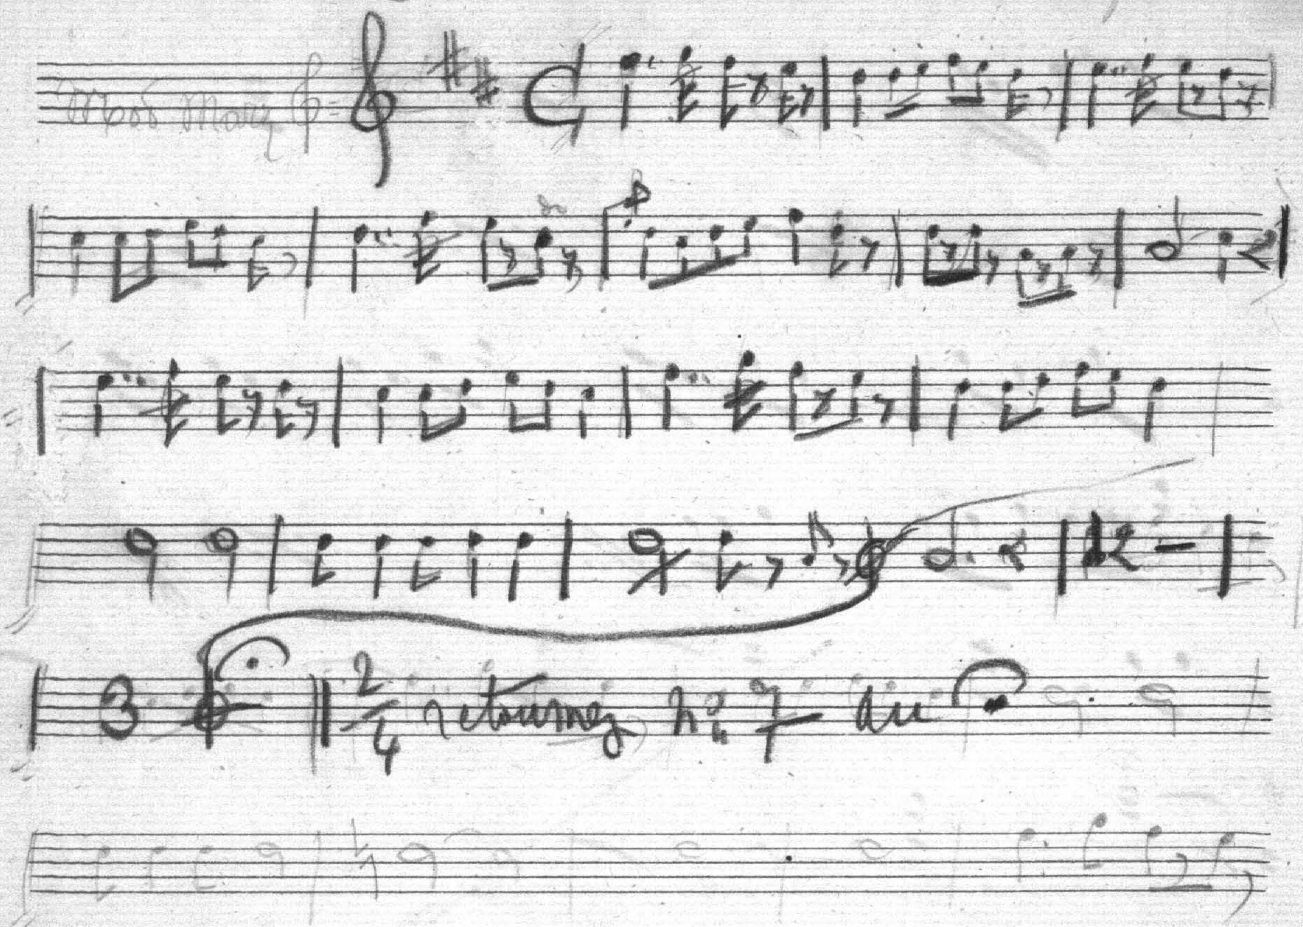 Mod Marz
12
3
2/4 retournez No 7 au